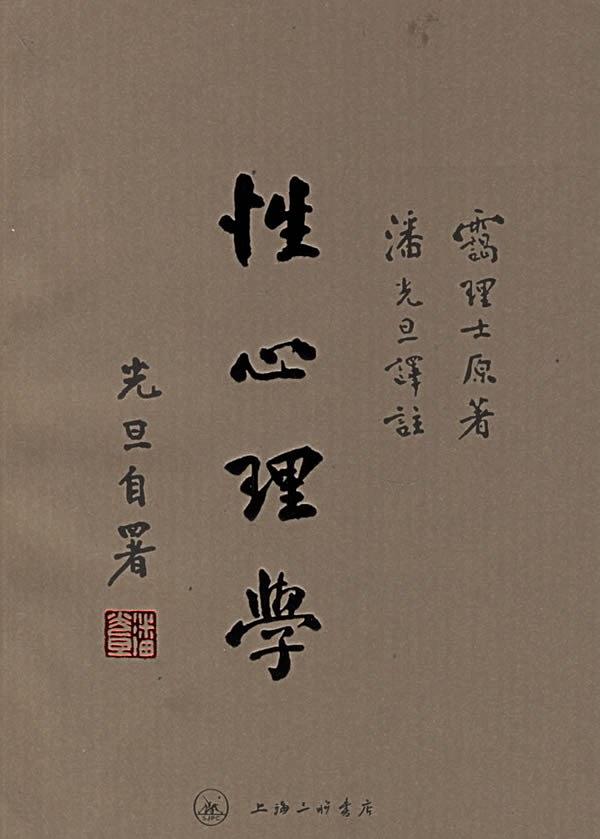 靄理士原著
潘光旦譯註
性心理學
光旦自署
潘光旦
SJPC
上海三联书店